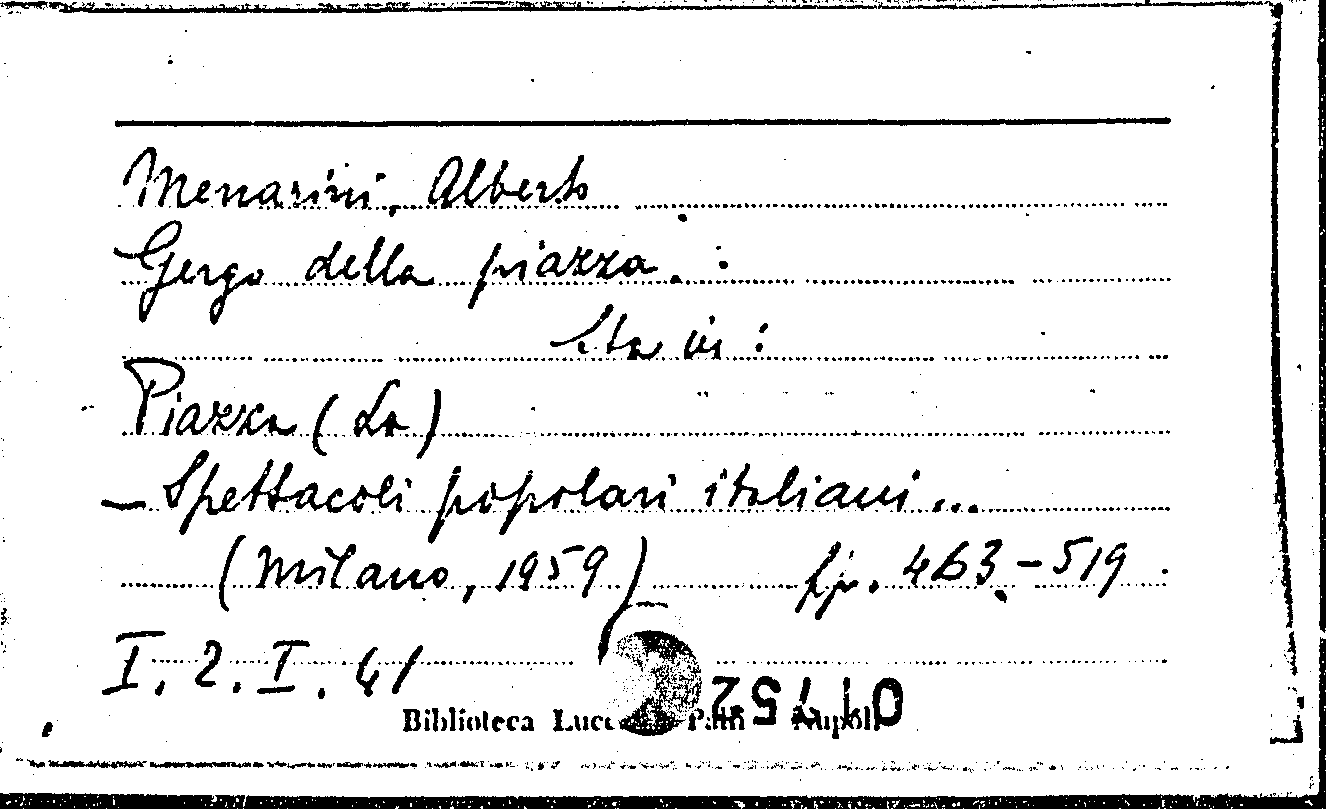 Menarini, Alberto
Gergo della piazza. :
Sta in :
Piazza (La)
— Spettacoli popolari italiani ...
(Milano, 1959) pp. 463-519.
I. 2. I. 41
Biblioteca Napoli